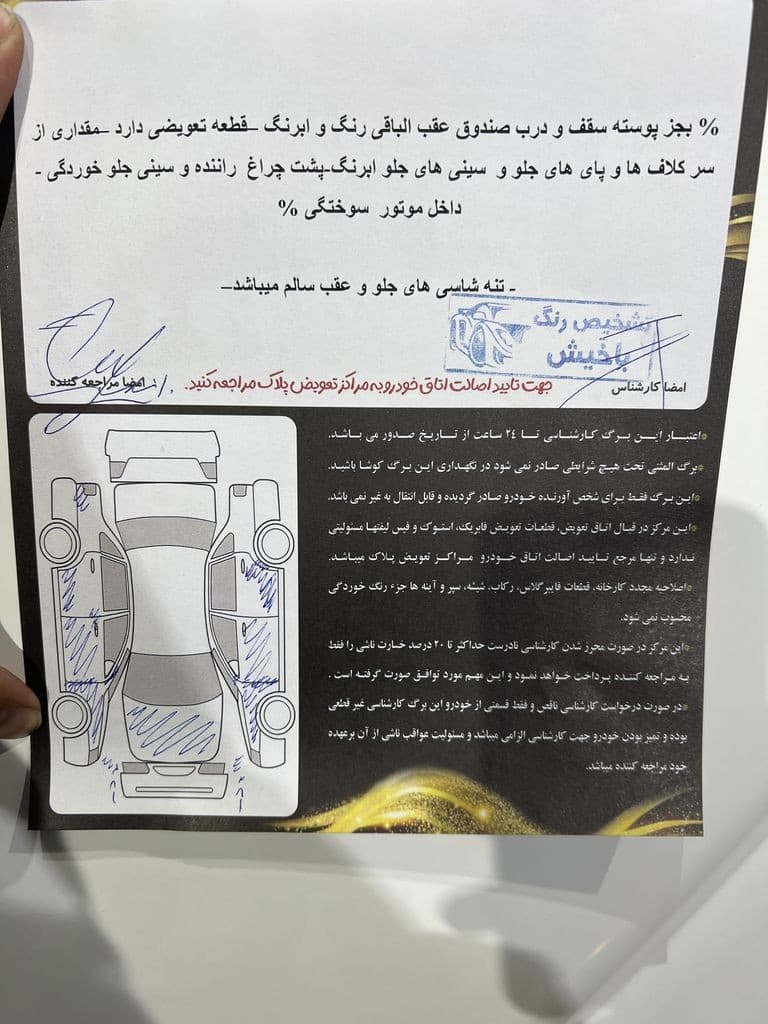 % بجز پوسته سقف و درب صندوق عقب الباقی رنگ و ابرنگ –قطعه تعویضی دارد –مقداری از
سر کلاف ها و پای های جلو و سینی های جلو ابرنگ-پشت چراغ راننده و سینی جلو خوردگی -
داخل موتور سوختگی %
- تنه شاسی های جلو و عقب سالم میباشد–
تشخیص رنگ
باخیش
امضا کارشناس
جهت تایید اصالت اتاق خودرو به مراکز تعویض پلاک مراجعه کنید.
امضا مراجعه کننده
اعتبار این برگ کارشناسی تا ۲۴ ساعت از تاریخ صدور می باشد.
برگ المثنی تحت هیچ شرایطی صادر نمی شود در نگهداری این برگ کوشا باشید.
این برگ فقط برای شخص آورنده خودرو صادر گردیده و قابل انتقال به غیر نمی باشد.
این مرکز در قبال اتاق تعویض، قطعات تعویض فابریک، استوک و فیس لیفتها مسئولیتی
ندارد و تنها مرجع تایید اصالت اتاق خودرو مراکز تعویض پلاک میباشد.
اصلاحیه مجدد کارخانه، قطعات فایبرگلاس، رکاب، شیشه، سپر و آینه ها جزء رنگ خوردگی
محسوب نمی شود.
این مرکز در صورت محرز شدن کارشناسی نادرست حداکثر تا ۲۰ درصد خسارت ناشی را فقط
به مراجعه کننده پرداخت خواهد نمود و این مهم مورد توافق صورت گرفته است.
در صورت درخواست کارشناسی ناقص و فقط قسمتی از خودرو این برگ کارشناسی غیر قطعی
بوده و تمیز بودن خودرو جهت کارشناسی الزامی میباشد و مسئولیت عواقب ناشی از آن برعهده
خود مراجعه کننده میباشد.